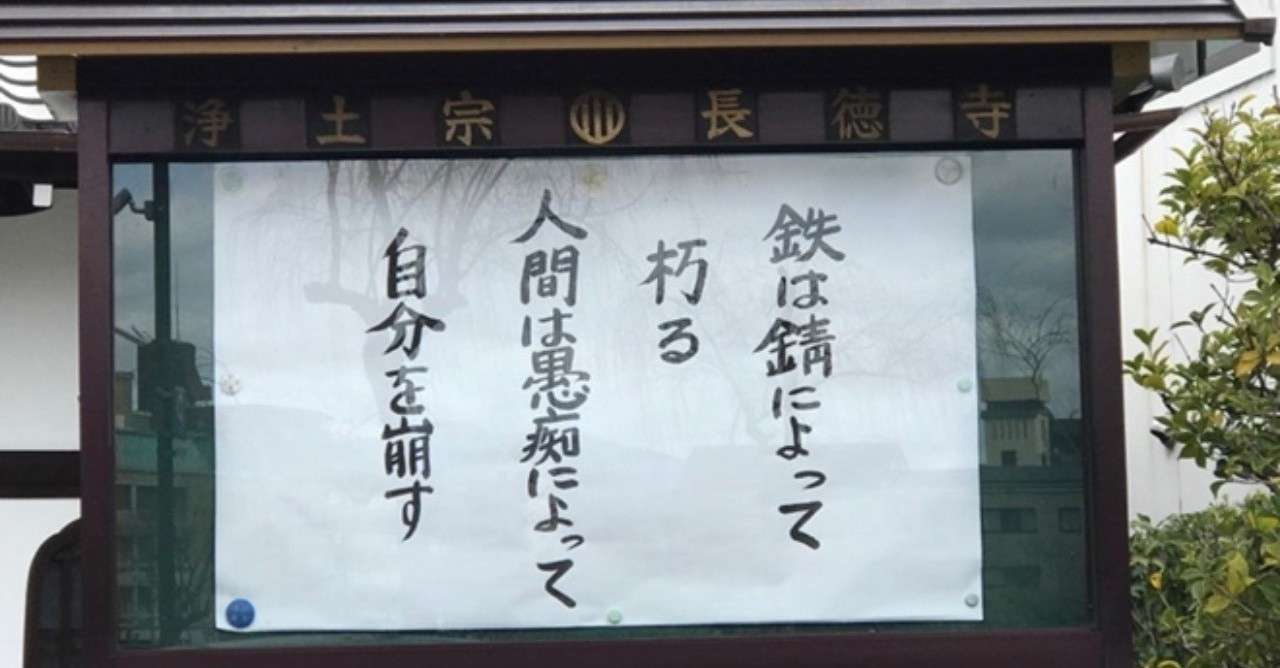 浄土宗 長徳寺
鉄は錆によって
朽る
人間は愚痴によって
自分を崩す